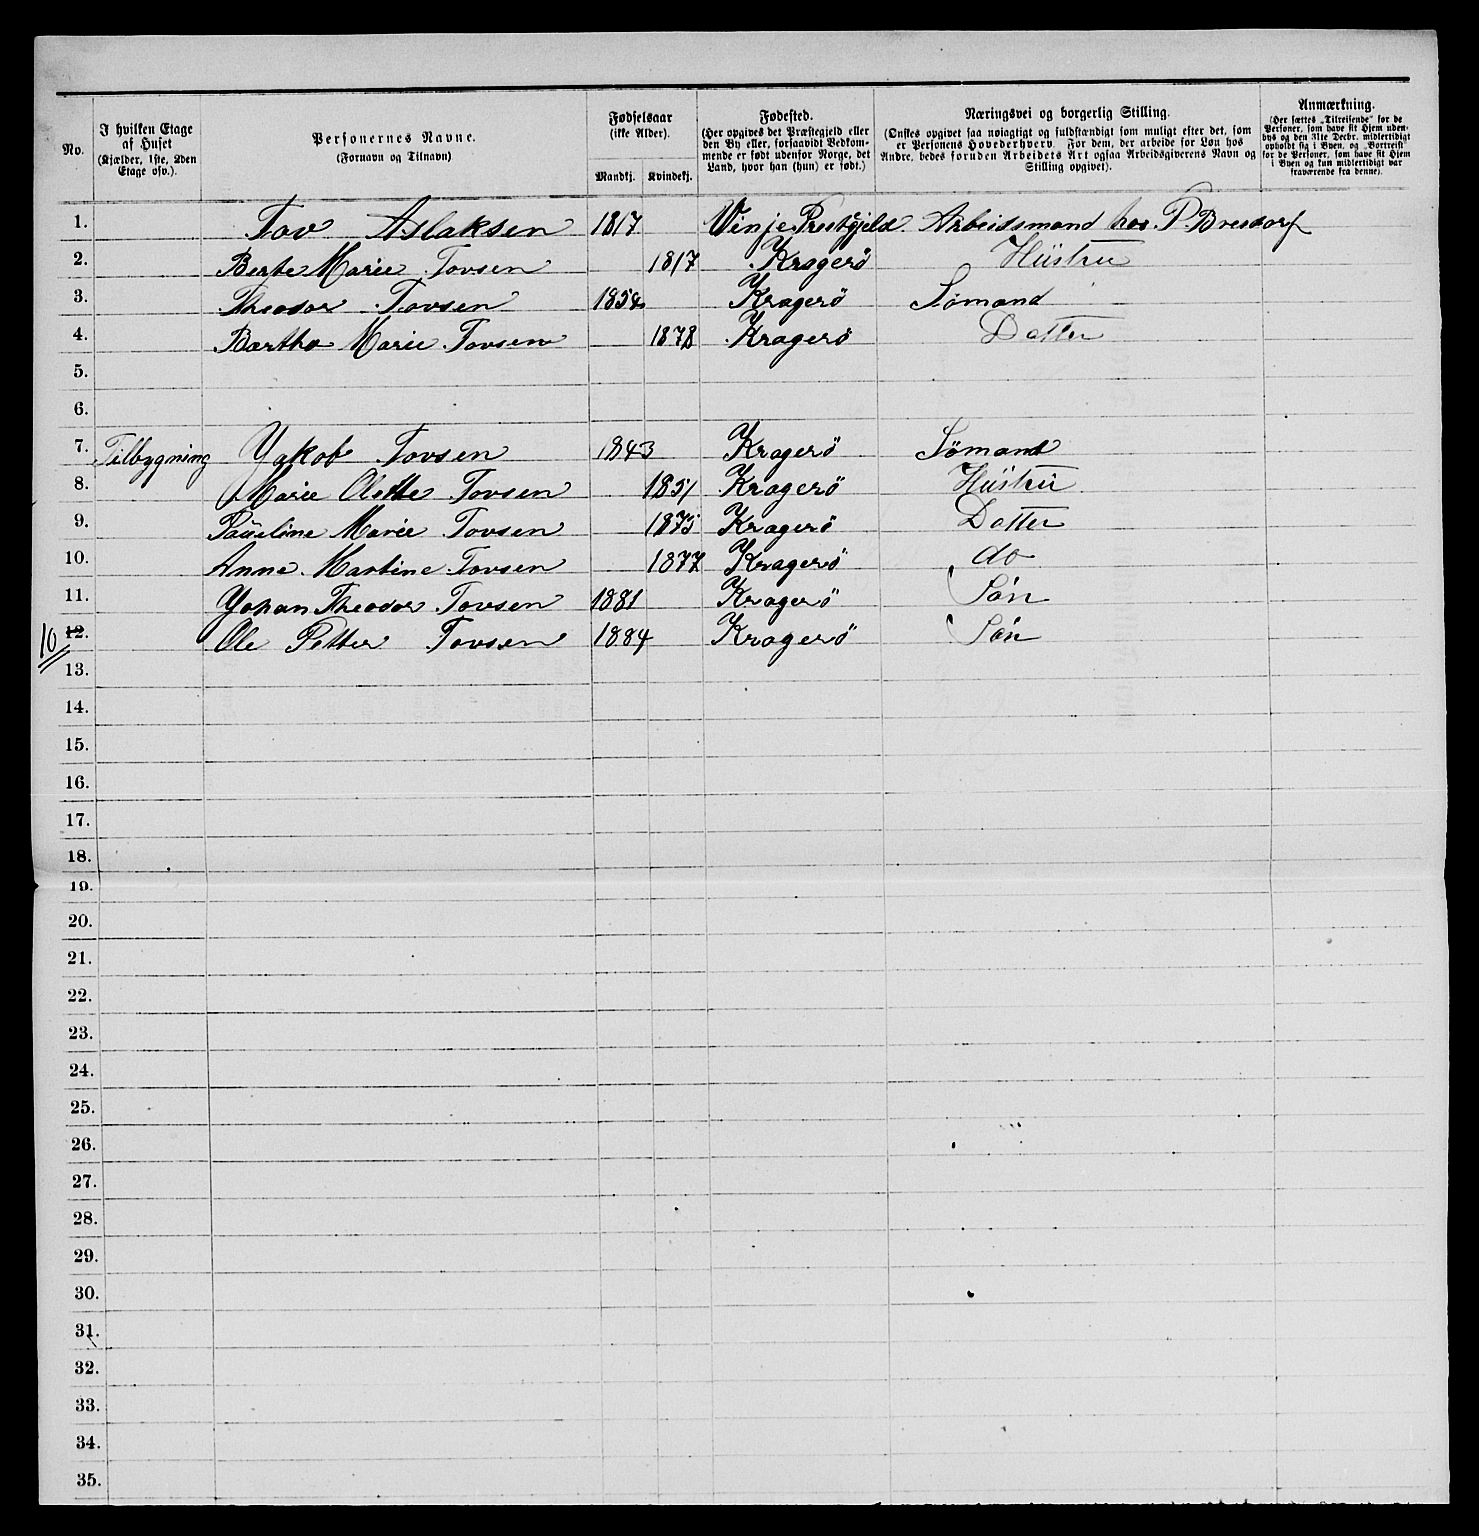 No.
I hvilken Etage af Huset (Kjælder, 1ste, 2den Etage osv.).
Personernes Navne. (Fornavn og Tilnavn)
Fødselsaar (ikke Alder).
Mandkj. Kvindekj.
Fødested. (Her opgives det Præstegjeld eller den By eller, forsaavidt Vedkommende er født udenfor Norge, det Land, hvor han (hun) er født.)
Næringsvei og borgerlig Stilling. (Ønskes opgivet saa nøiagtigt og fuldstændigt som muligt efter det, som er Personens Hovederhverv. For dem, der arbeide for Løn hos Andre, bedes foruden Arbeidets Art ogsaa Arbeidsgiverens Navn og Stilling opgivet).
Anmærkning. (Her sættes „Tilreisende" for de Personer, som have sit Hjem udenbys og den 31te Decbr. midlertidigt opholdt sig i Byen, og „Bortreist" for de Personer, som have sit Hjem i Byen og kun midlertidigt var fraværende fra denne).
1. Tov Aslaksen 1817 Vinje Prestgjeld Arbeidsmand hos P. Bresdorf
2. Berte Marie Tovsen 1817 Kragerö Hüstru
3. Theodor Tovsen 1854 Kragerö Sömand
4. Bartha Marie Tovsen 1878 Kragerö Datter
5.
6.
7. Tilbygning Yakob Tovsen 1843 Kragerö Sömand
8. Marie Olette Tovsen 1851 Kragerö Hüstrü
9. Paüeline Marie Tovsen 1875 Kragerö Datter
10. Anne Martine Tovsen 1877 Kragerö do
11. Yohan Theodor Tovsen 1881 Kragerö Sön
10 12. Ole Petter Tovsen 1884 Kragerö Sön
13.
14.
15.
16.
17.
18.
19.
20.
21.
22.
23.
24.
25.
26.
27.
28.
29.
30.
31.
32.
33.
34.
35.